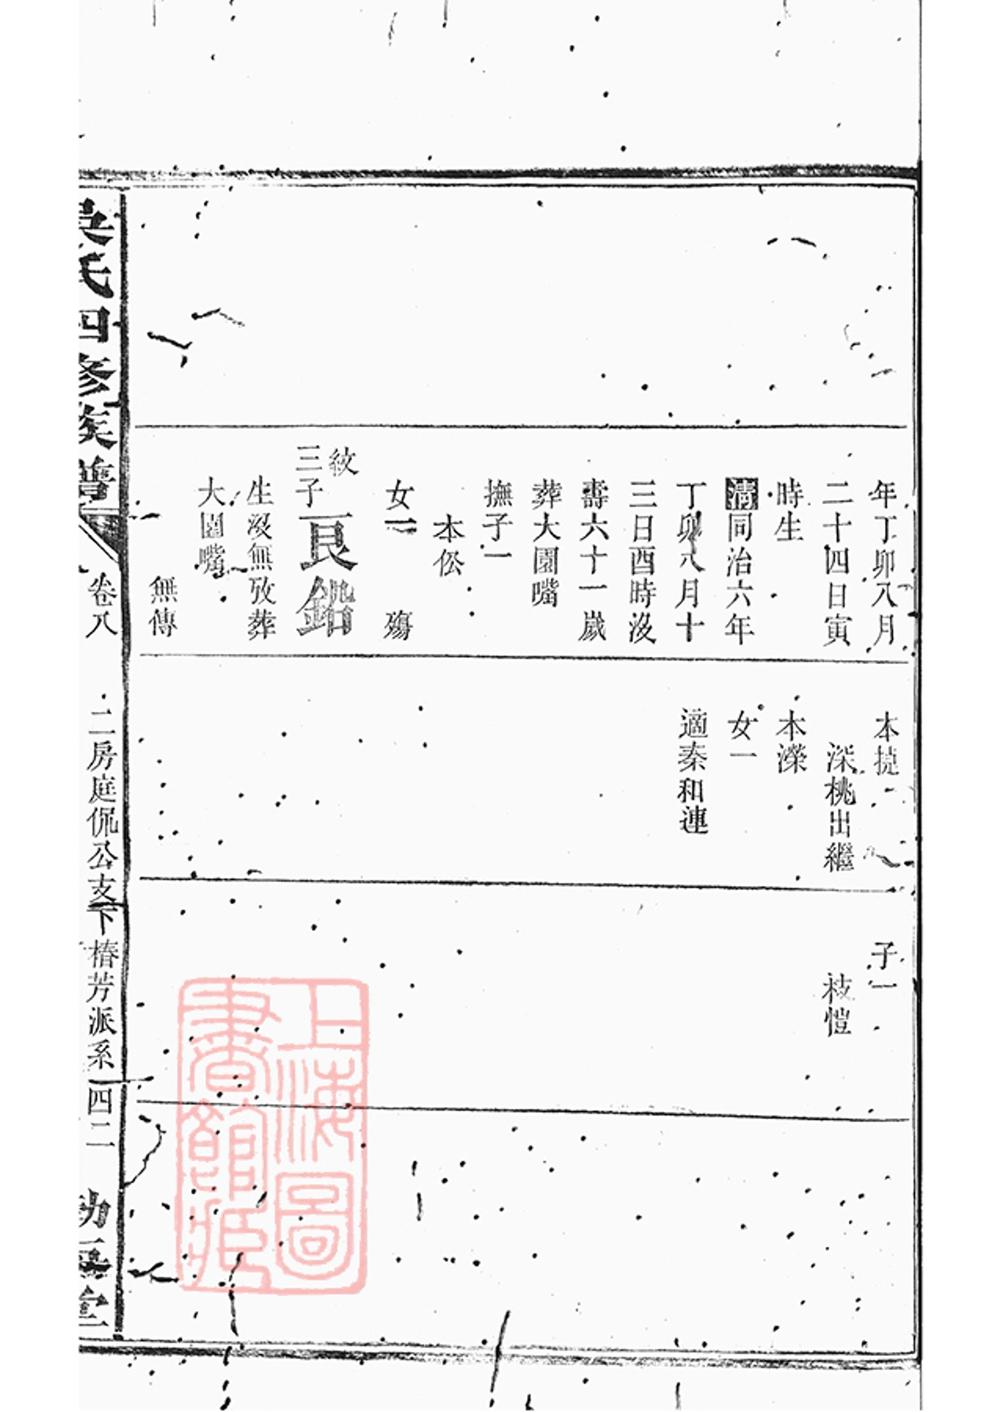 年丁卯八月
二十四日寅
時生
清同治六年
丁卯八月十
三日酉時沒
壽六十一歲
葬大園嘴
撫子一
本伀
女一 殤
紋三子
良
生沒無攷葬
大園嘴
無傳
本㨗
深桃出繼
本濚
女一
適秦和連
子一
枝愷
吳氏四修族譜
卷八
二房庭侃公支下椿芳派系
四二
堂
上海圖書館藏